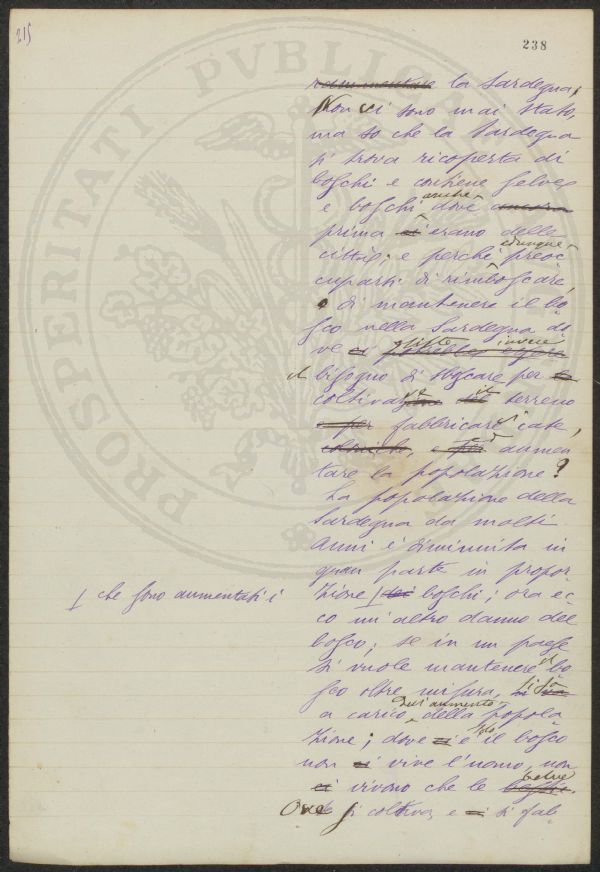 215
238
PROSPERITATI PVBLICAE
la Sardegna,
Non ci sono mai stato,
ma so che la Sardegna
si trova ricoperta di
boschi e contiene selve
e boschi anche dove ancora
prima ci erano delle
città; e perchè dunque preoc
cuparsi di rimboscare,
o di mantenere il bo-
sco nella Sardegna do
ve ci potrebbe essere invece
il bisogno di sboscare per
coltivare il terreno
e per fabbricarvi case,
coloniche, e per aumen
tare la popolazione?
La popolazione della
Sardegna da molti
Anni è diminuita in
gran parte in propor-
zione dei boschi; ora ec-
che sono aumentati i
co un'altro danno del
bosco; se in un paese
si vuole mantenere il bo
sco oltre misura, si fa
a carico dell'aumento della popola
zione; dove ci è solo il bosco
non ci vive l'uomo, non
ci vivono che le belve
Ove si coltiva, e ci si fab-